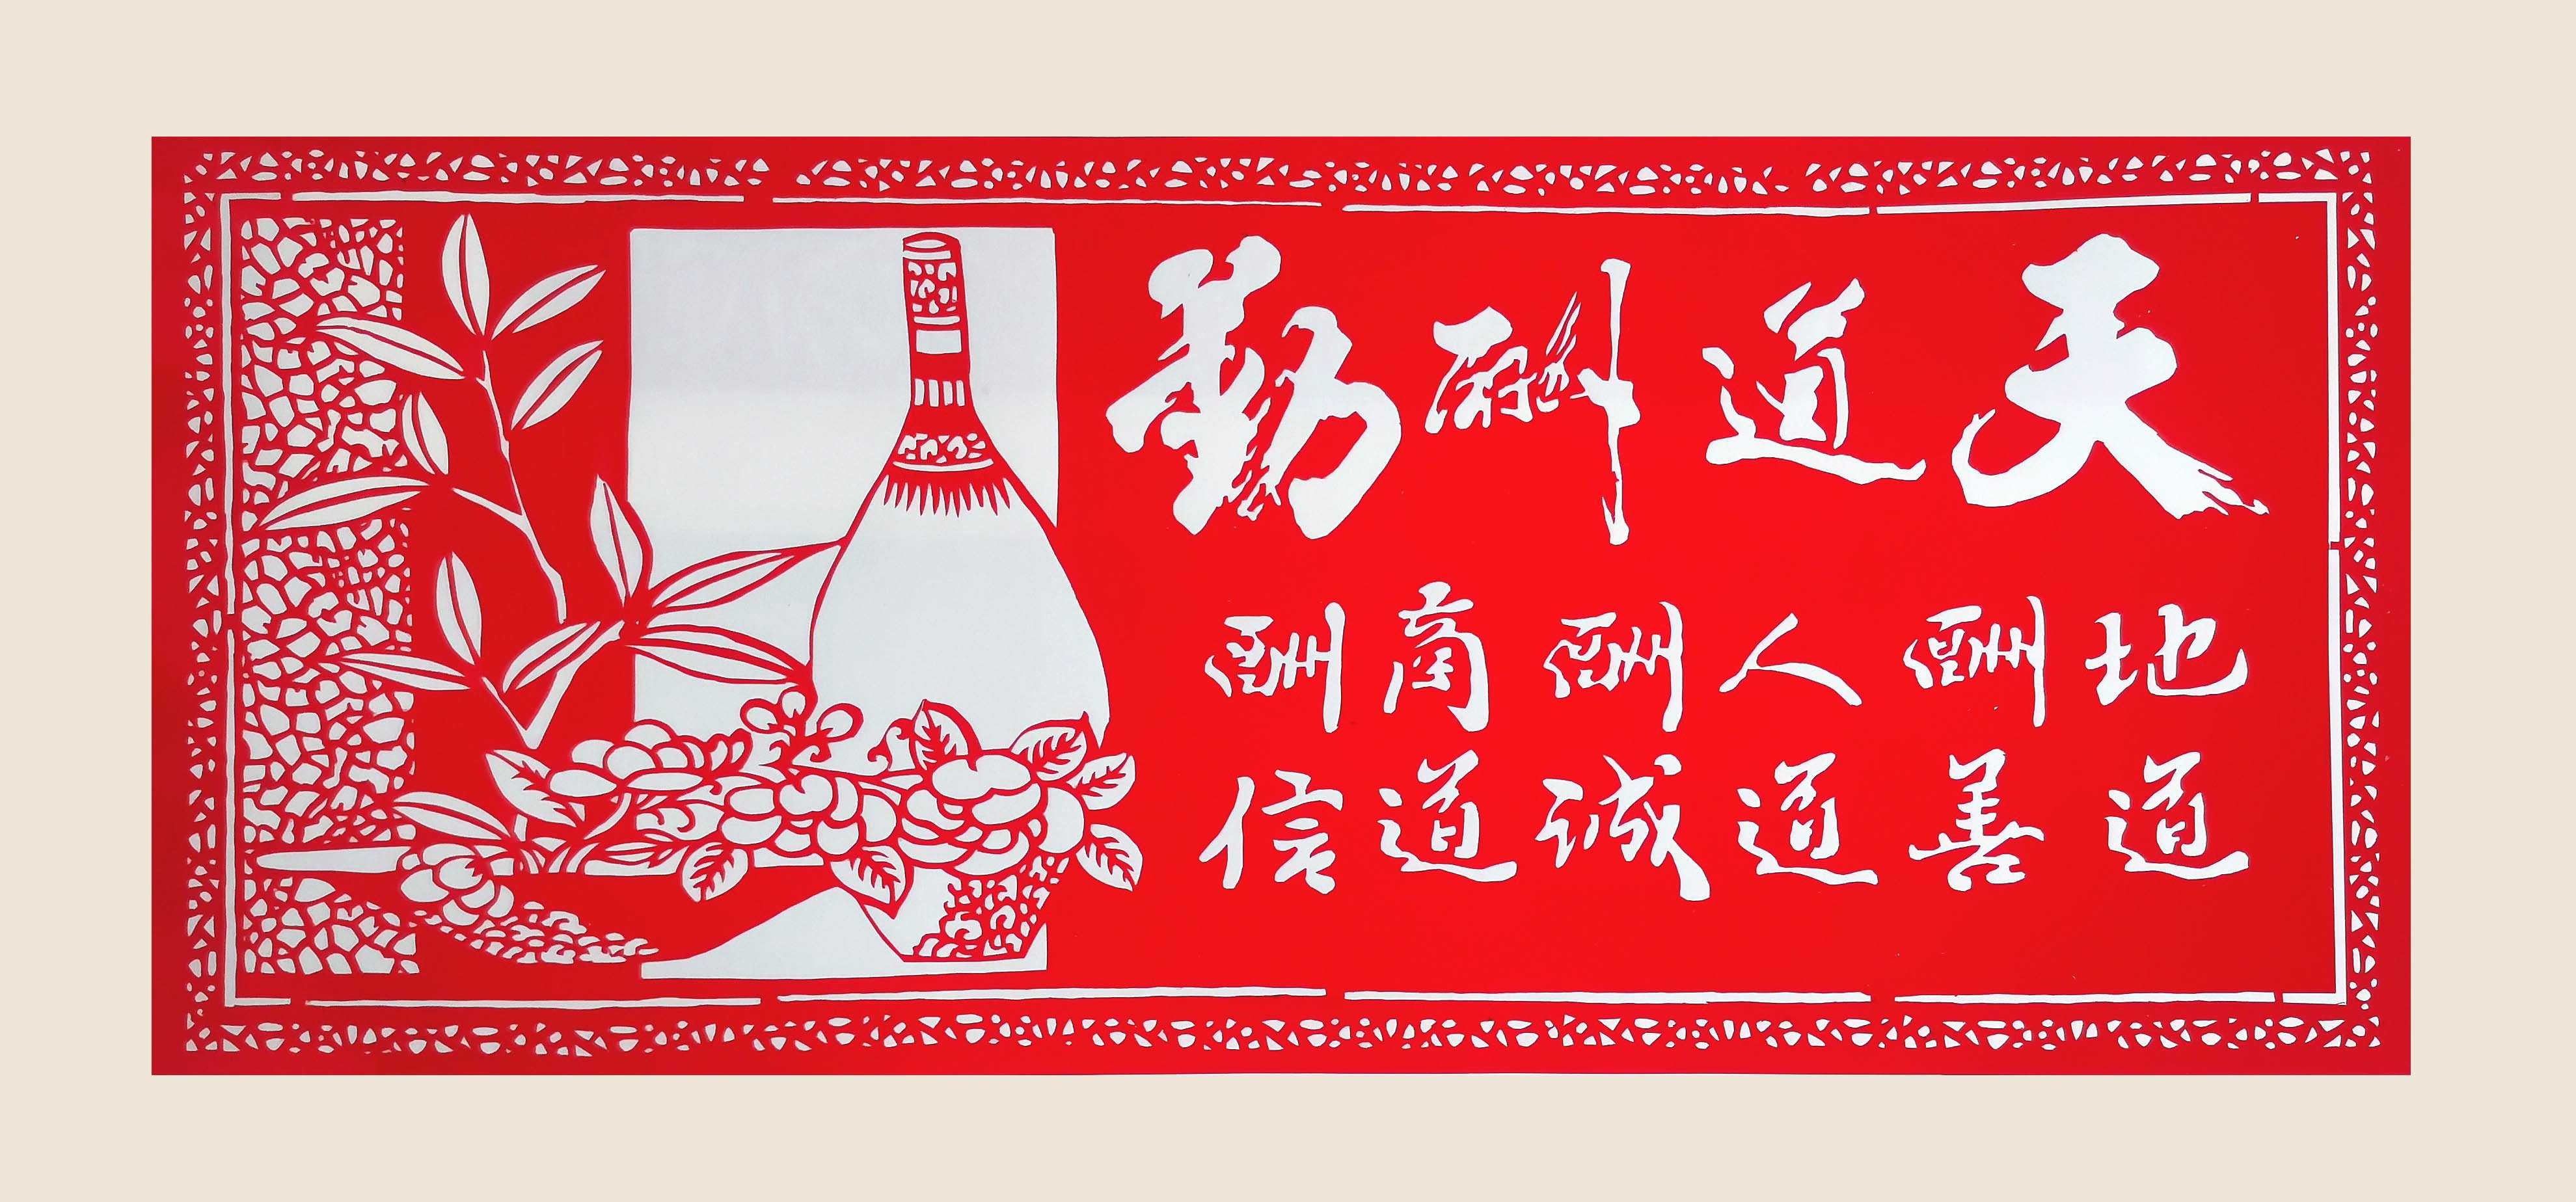 天道酬勤
地道
酬善
人道
酬诚
商道
酬信